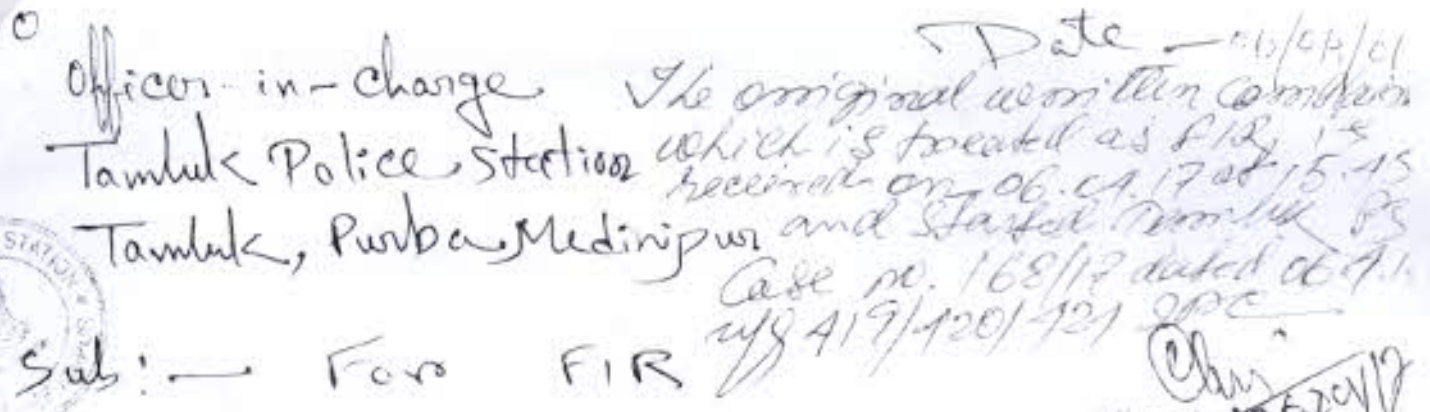 Date -
Officer-in-Charge
Tamluk Police Station
Tamluk, Purba Medinipur
Sub:- For FIR
The original written
which is treated as FIR, is
received on 06.04.17 at 15.45
and started Tamluk PS
Case no. 168/17 dated
u/s 419/420/ IPC
STATION